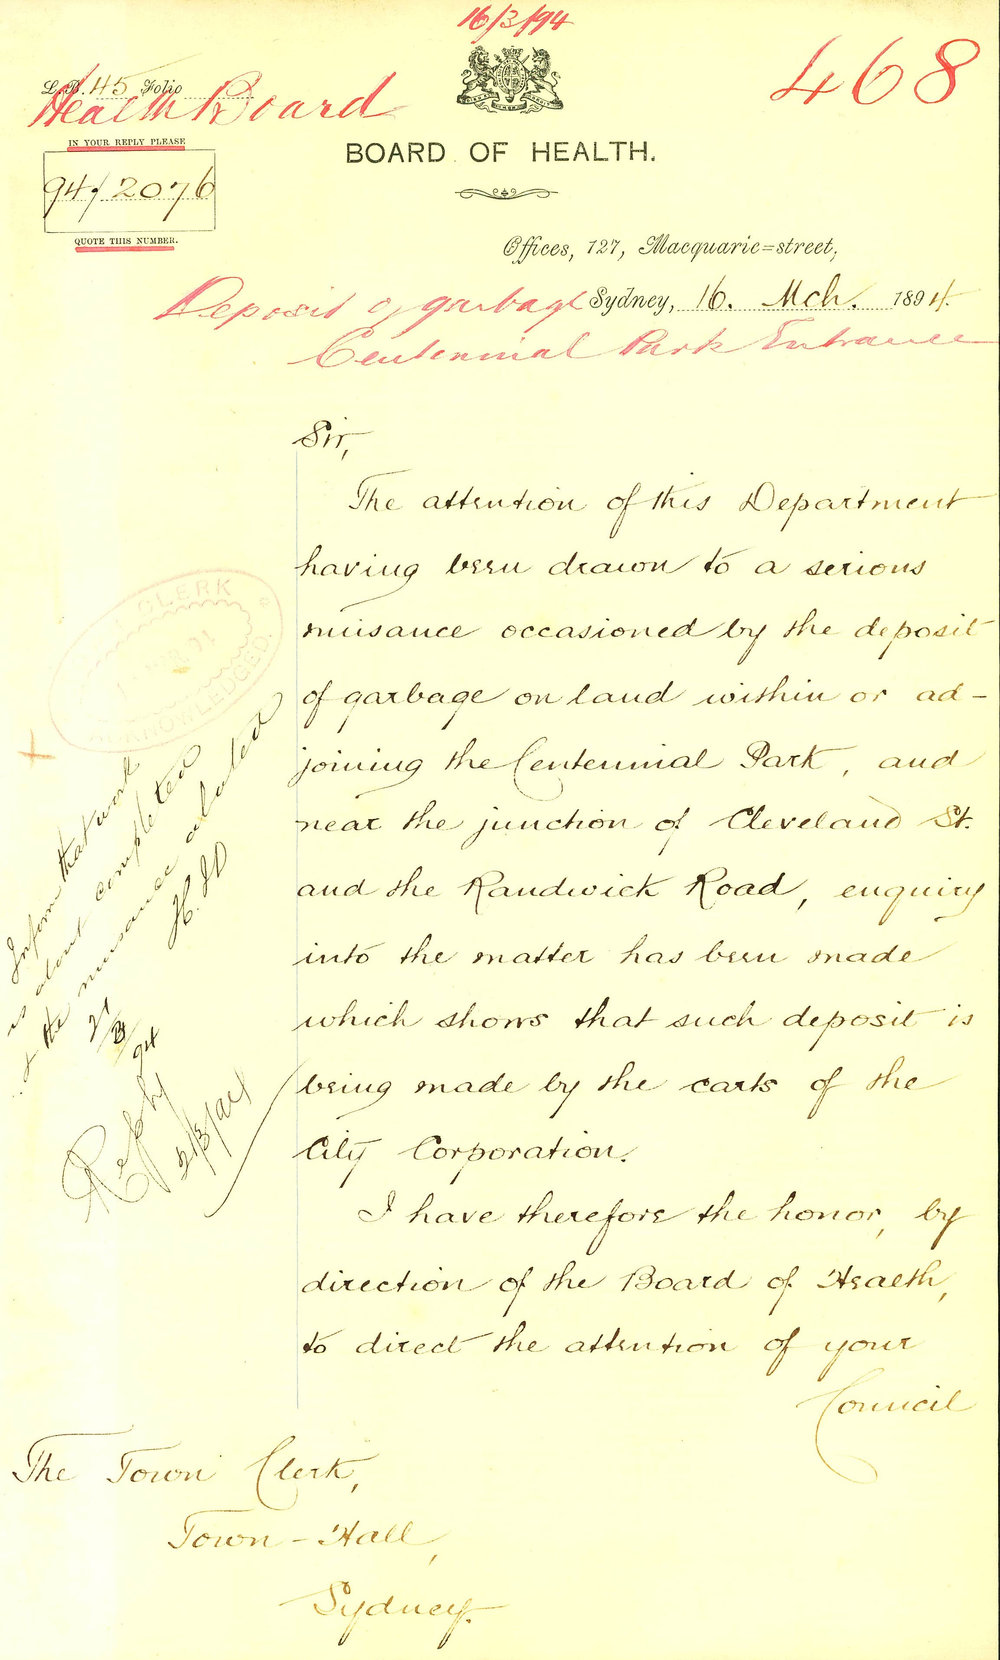 16/3/94
468
L.B. 45 Folio
Health Board
IN YOUR REPLY PLEASE
94/2076
QUOTE THIS NUMBER.
BOARD OF HEALTH.
Offices, 127, Macquarie=street,
Sydney, 16. Mch. 1894.
Deposit of garbage
Centennial Park Entrance
Sir,
The attention of this Department
having been drawn to a serious
nuisance occasioned by the deposit
of garbage on land within or ad-
joining the Centennial Park, and
near the junction of Cleveland St.
and the Randwick Road, enquiry
into the matter has been made
which shows that such deposit is
being made by the carts of the
City Corporation.
I have therefore the honor, by
direction of the Board of Health,
to direct the attention of your
Council
The Town Clerk,
Town-Hall,
Sydney.
CLERK
ACKNOWLEDGED.
Inform that work
is about completed
the nuisance abated
21/3/94
Reply
21/3/94